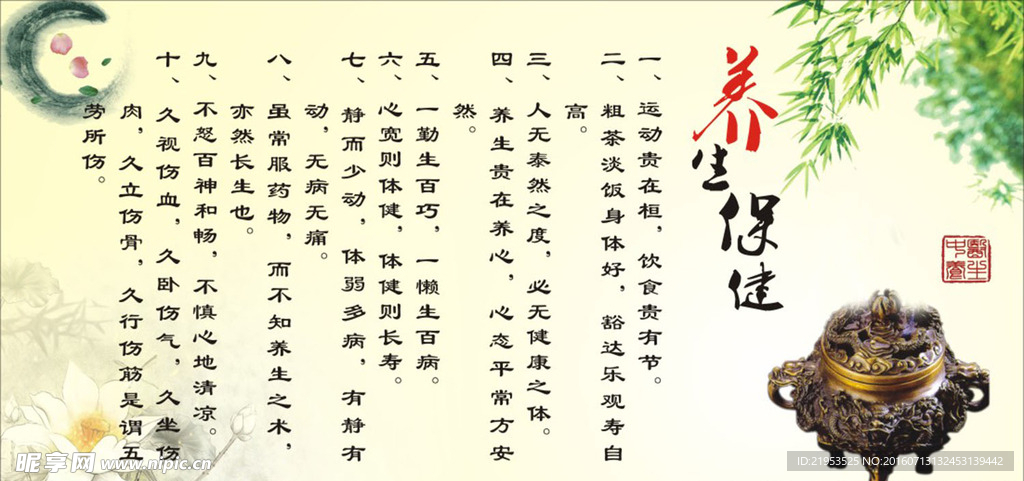 养生保健
一、运动贵在桓，饮食贵有节。
二、粗茶淡饭身体好，豁达乐观寿自
高。
三、人无泰然之度，必无健康之体。
四、养生贵在养心，心态平常方安
然。
五、一勤生百巧，一懒生百病。
六、心宽则体健，体健则长寿。
七、静而少动，体弱多病，有静有
动，无病无痛。
八、虽常服药物，而不知养生之术，
亦然长生也。
九、不怒百神和畅，不慎心地清凉。
十、久视伤血，久卧伤气，久坐伤
肉，久立伤骨，久行伤筋是谓五
劳所伤。
昵享网 www.nipic.cn
ID:21953525 NO:20160713132453139442